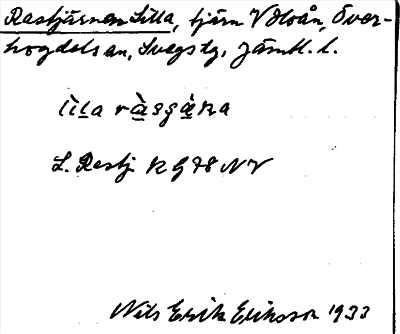 Rastjärnen Lilla, tjärn V Hoån, Över-
hogdals sn, Svegs tg, Jämtl. l.
lìl̲a rà̲sʒà̲ṇa
L. Rastj KG 78 NV
Nils Erik Eriksson 1933